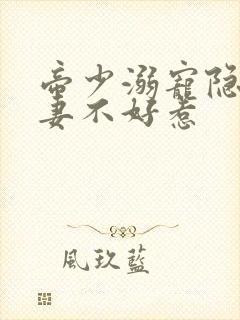 帝少溺寵隐
妻不好惹
風玖藍